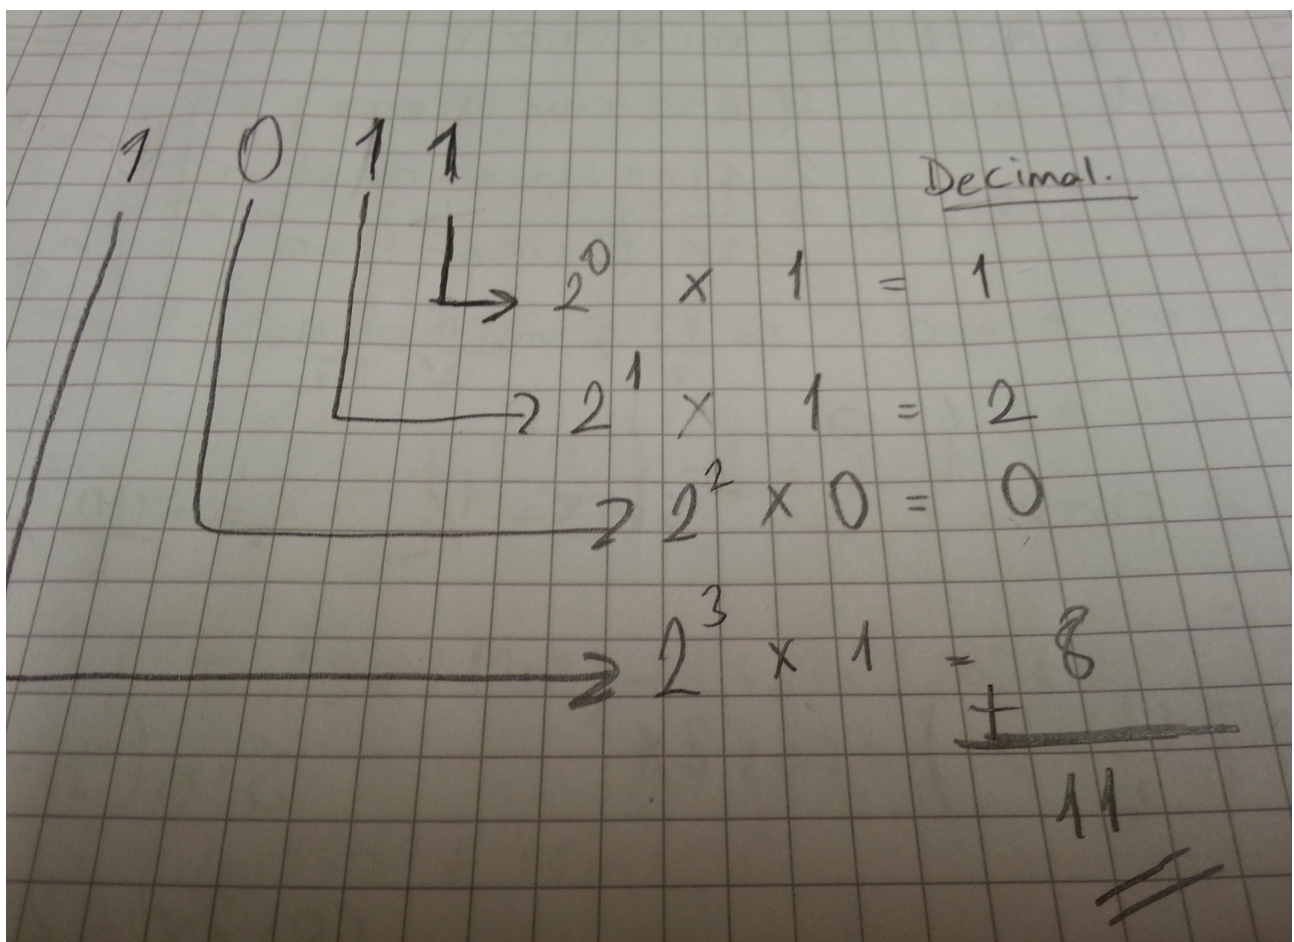 1 0 1 1
Decimal.
2⁰ × 1 = 1
2¹ × 1 = 2
2² × 0 = 0
2³ × 1 = 8
+
11